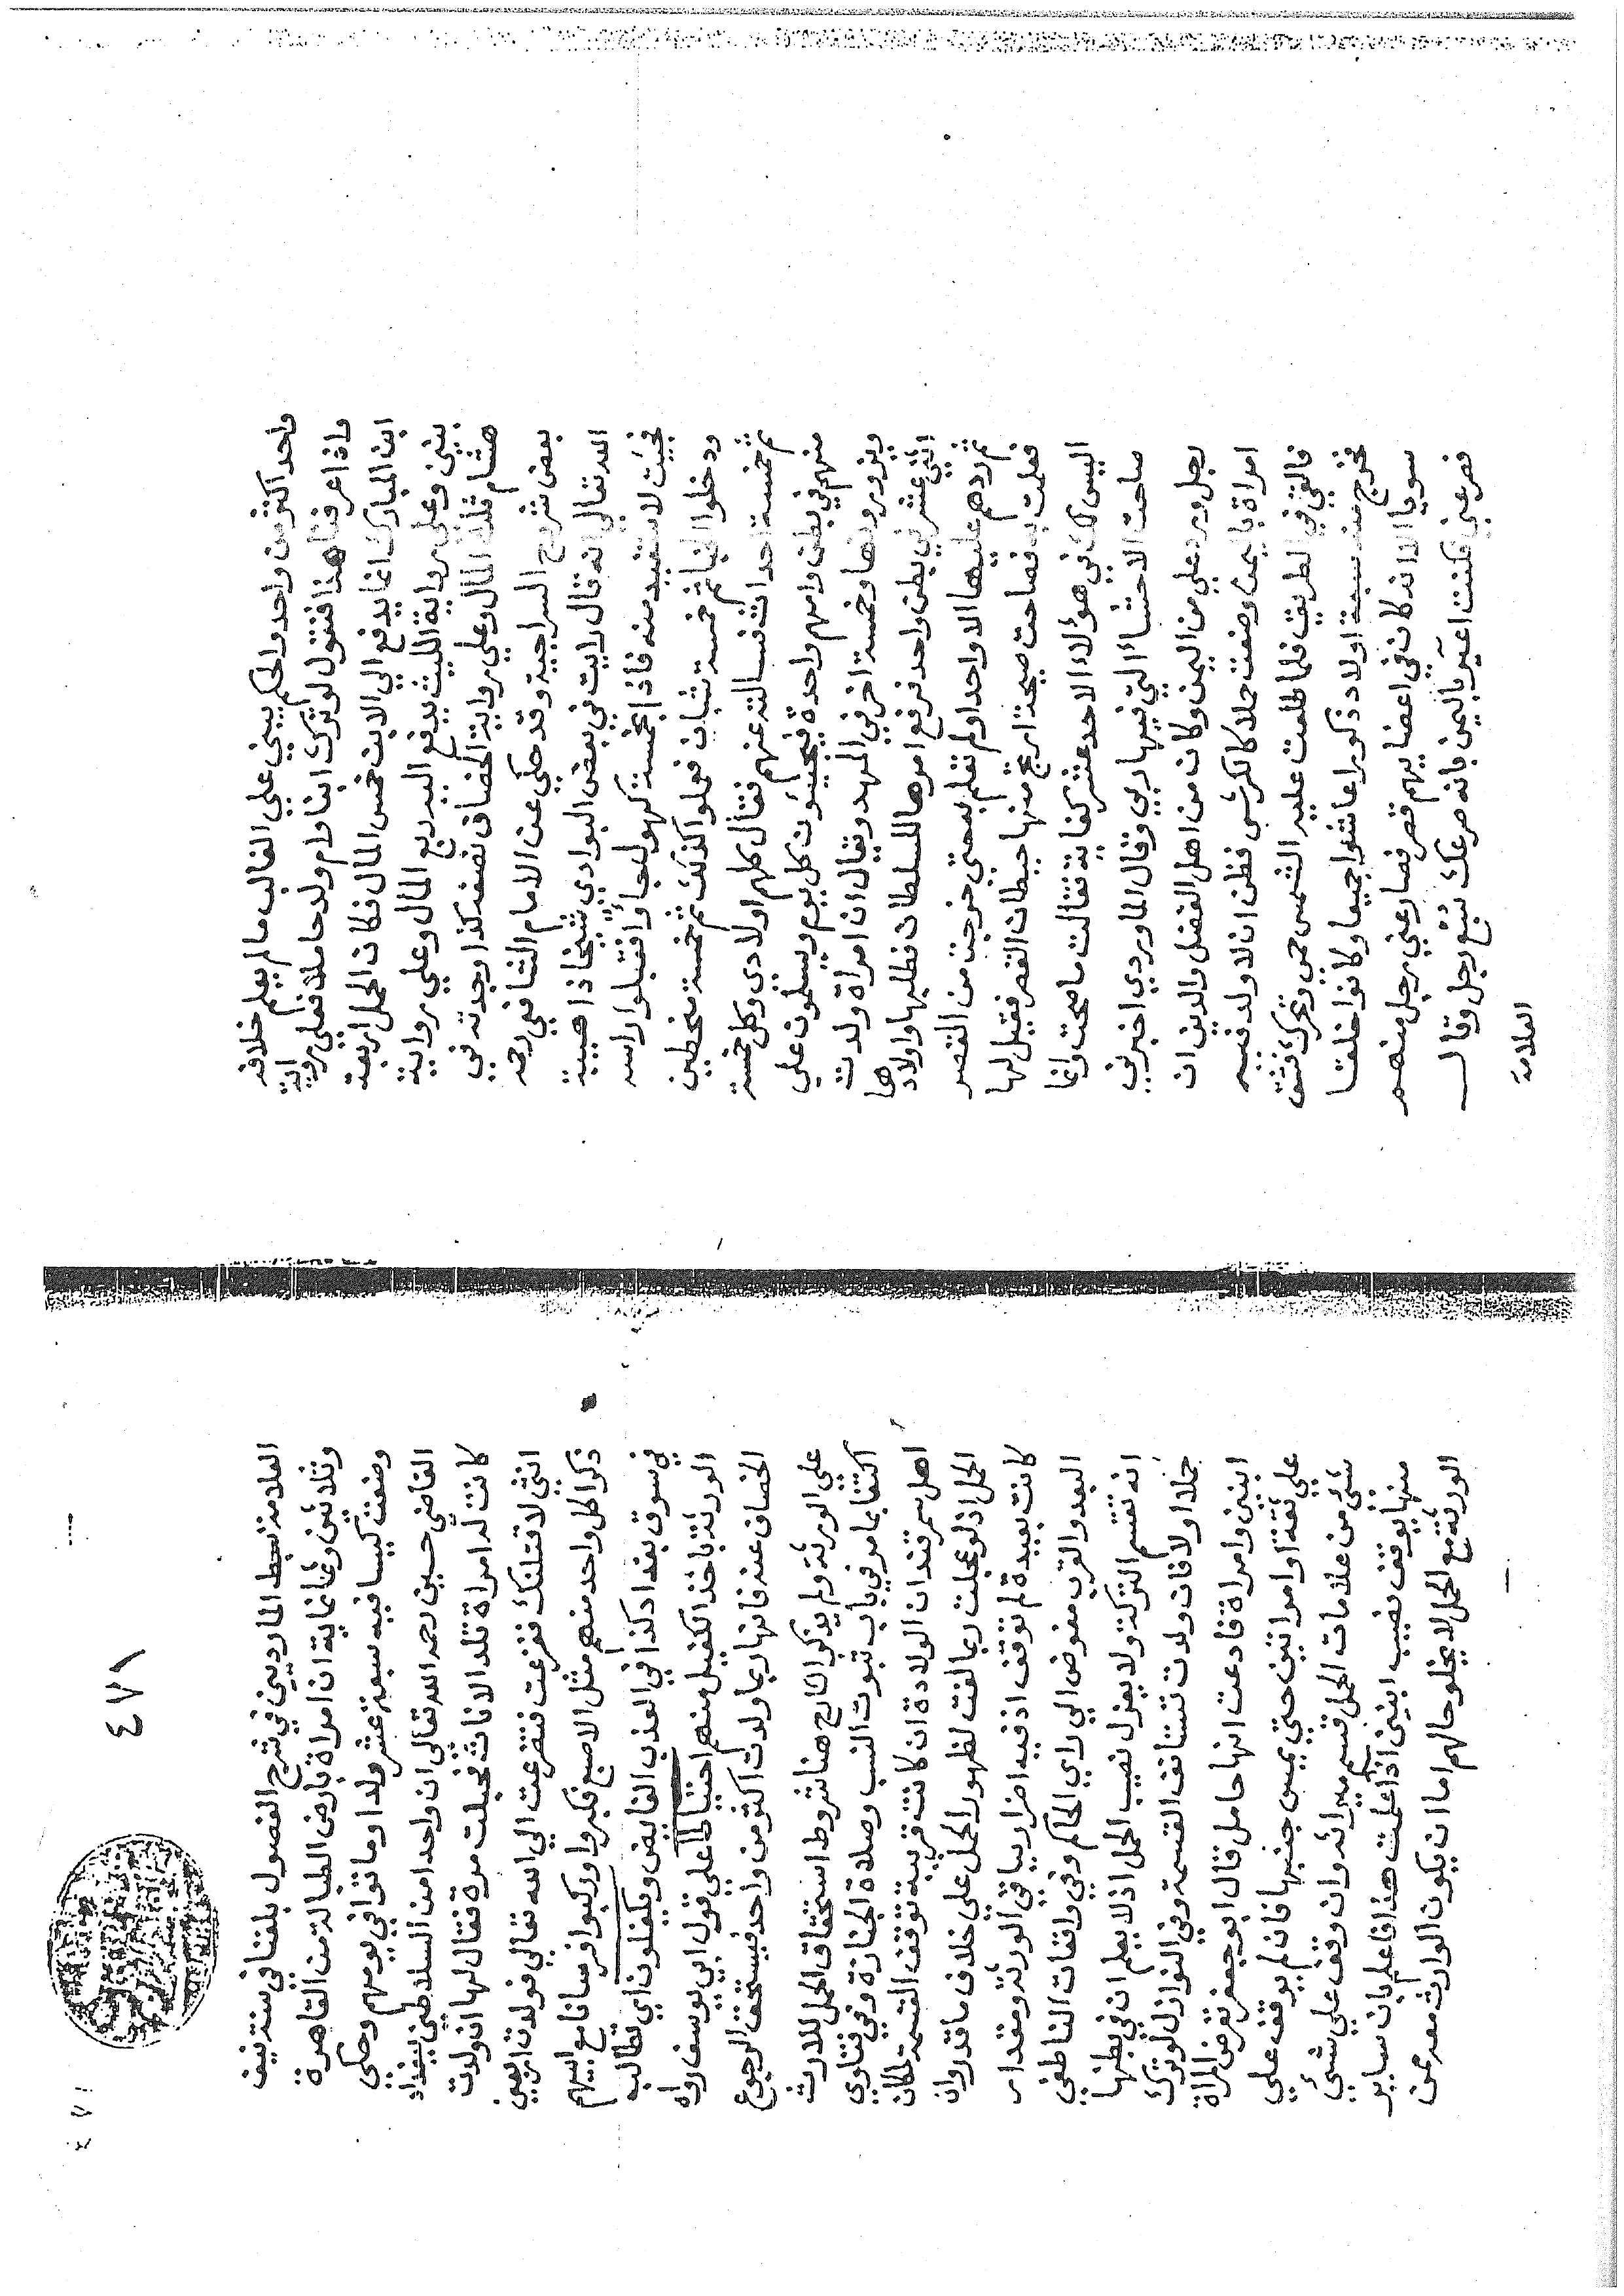 واحد اكثر من واحد والحكم يبني علي الغالب ما لم يعلم خلافه
واذا عرفنا هذا فنقول لو ترك ابنا وام ولد حاملا فعلي رواية
ابن المبارك انما يدفع الي الابن خمس المال فكان الحمل اربعة
بنين وعلي رواية الليث يدفع اليه ربع المال وعلي رواية
هشام ثلث المال وعلي رواية الخصاف نصفه كذا وجدته في
بعض شروح السراجية وقد حكي عن الامام الشافعي رحمه
الله تعالي انه قال رايت في بعض البوادي شيخا ذا هيبة
فجيت لاستفيد منه فاذا بخمسة كهول جاؤا فقبلوا راسه
ودخلوا الخبا ثم خمسة شبان فعلوا كذلك ثم خمسة منحطين
ثم خمسة احداث فسالته عنهم فقال كلهم اولادي وكل خمسة
منهم في بطن وامهم واحدة فيجيئون كل يوم ويسلمون علي
ويزورونها وخمسة اخر في المهد ويقال ان امراة ولدت
اثني عشر في بطن واحد فرفع امرها للسلطان فطلبها واولادها
ثم ردهم عليها الا واحدا ولم تعلم به حتي خرجت من القصر
فعلمت به فصاحت صيحة ارتج منها حيطان القصر فقيل لها
اليس لك في هؤلاء الاحد عشر كفاية فقالت ما صحت وانما
صاحت الاحشاء التي فيها ربي وقال الماوردي اخبرني
رجل ورد علي من اليمن وكان من اهل الفضل والدين ان
امراة باليمن وضعت حملا كالكرش فظن ان لا ولد فيه
فالقي في الطريق فلما طلعت عليه الشمس حمي وتحرك فشق
فخرج منه سبعة اولاد ذكورا عاشوا جميعا وكانوا خلقا
سويا الا انه كان في اعضايهم قصر فصارعني رجل منهم
فصرعني فكنت اعير باليمن بانه صرعك سبع رجل وقال
العلامة
٤٧١
العلامة سبط المارديني في شرح الفصول بلغنا في سنة نيف
وثلاثين وثمانماية ان امراة بارض الطبالة من القاهرة
وضعت كيسا فيه سبعة عشر ولدا وماتوا في يومهم وحكي
القاضي حسين رحمه الله تعالي ان واحدا من السلاطين ببغداد
كانت له امراة تلد الاناث فحبلت مرة فقال لها ان ولدت
انثي لاقتلنك ففزعت فتضرعت الي الله تعالي فولدت اربعين
ذكرا كل واحد منهم مثل الاصبع فكبروا وركبوا فرسانا مع ابيهم
في سوق بغداد كذا في العذب الفايض ويكفلون اي تطالب
الورثة باخذ الكفيل منهم احتياطا علي قول ابي يوسف رواه
الخصاف عنه فانها ربما ولدت اكثر من واحد فيستحق الرجوع
علي الورثة ولم يذكر الشارح هنا شروط استحقاق الحمل للارث
اكتفا بما مر في باب ثبوت النسب وصلاة الجنازة وفي فتاوي
اهل سمرقند ان الولادة ان كانت قريبة توقف القسمة لمكان
الحمل اذ لو عجلت ربما لغت لظهور الحمل علي خلاف ما قدر وان
كانت بعيدة لم توقف اذ فيه اضرار بباقي الورثة ومقدار
البعد والقرب مفوض الي راي الحاكم وفي واقعات الناطفي
انه تقسم التركة ولا يعزل نصيب الحمل اذ لا يعلم ان في بطنها
حملا او لا فان ولدت تستانف القسمة وفي النوازل لو ترك
ابنين وامراة فادعت انها حامل قال ابو جعفر تعرض المراة
علي ثقة او امراتين حتي يمس جنبها فان لم يوقف علي
شئ من علامات الحمل قسم ميراثه وان وقف علي شئ
منها يوقف نصيب ابنين اذا علمت هذا فاعلم بان ساير
الورثة مع الحمل لا يخلو حالهم اما ان يكون الوارث معه ممن